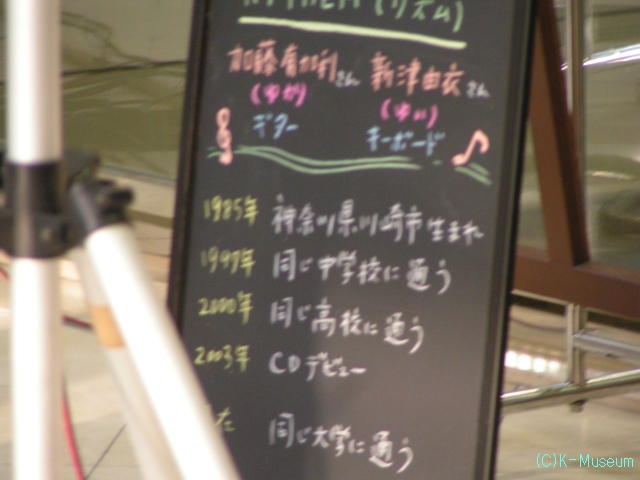 (リズム)
加藤有加利さん 新津由衣さん
(ゆか) (ゆい)
ギター キーボード
1985年 神奈川県川崎市生まれ
1997年 同じ中学校に通う
2000年 同じ高校に通う
2003年 CDデビュー
在 同じ大学に通う
(C)K-Museum